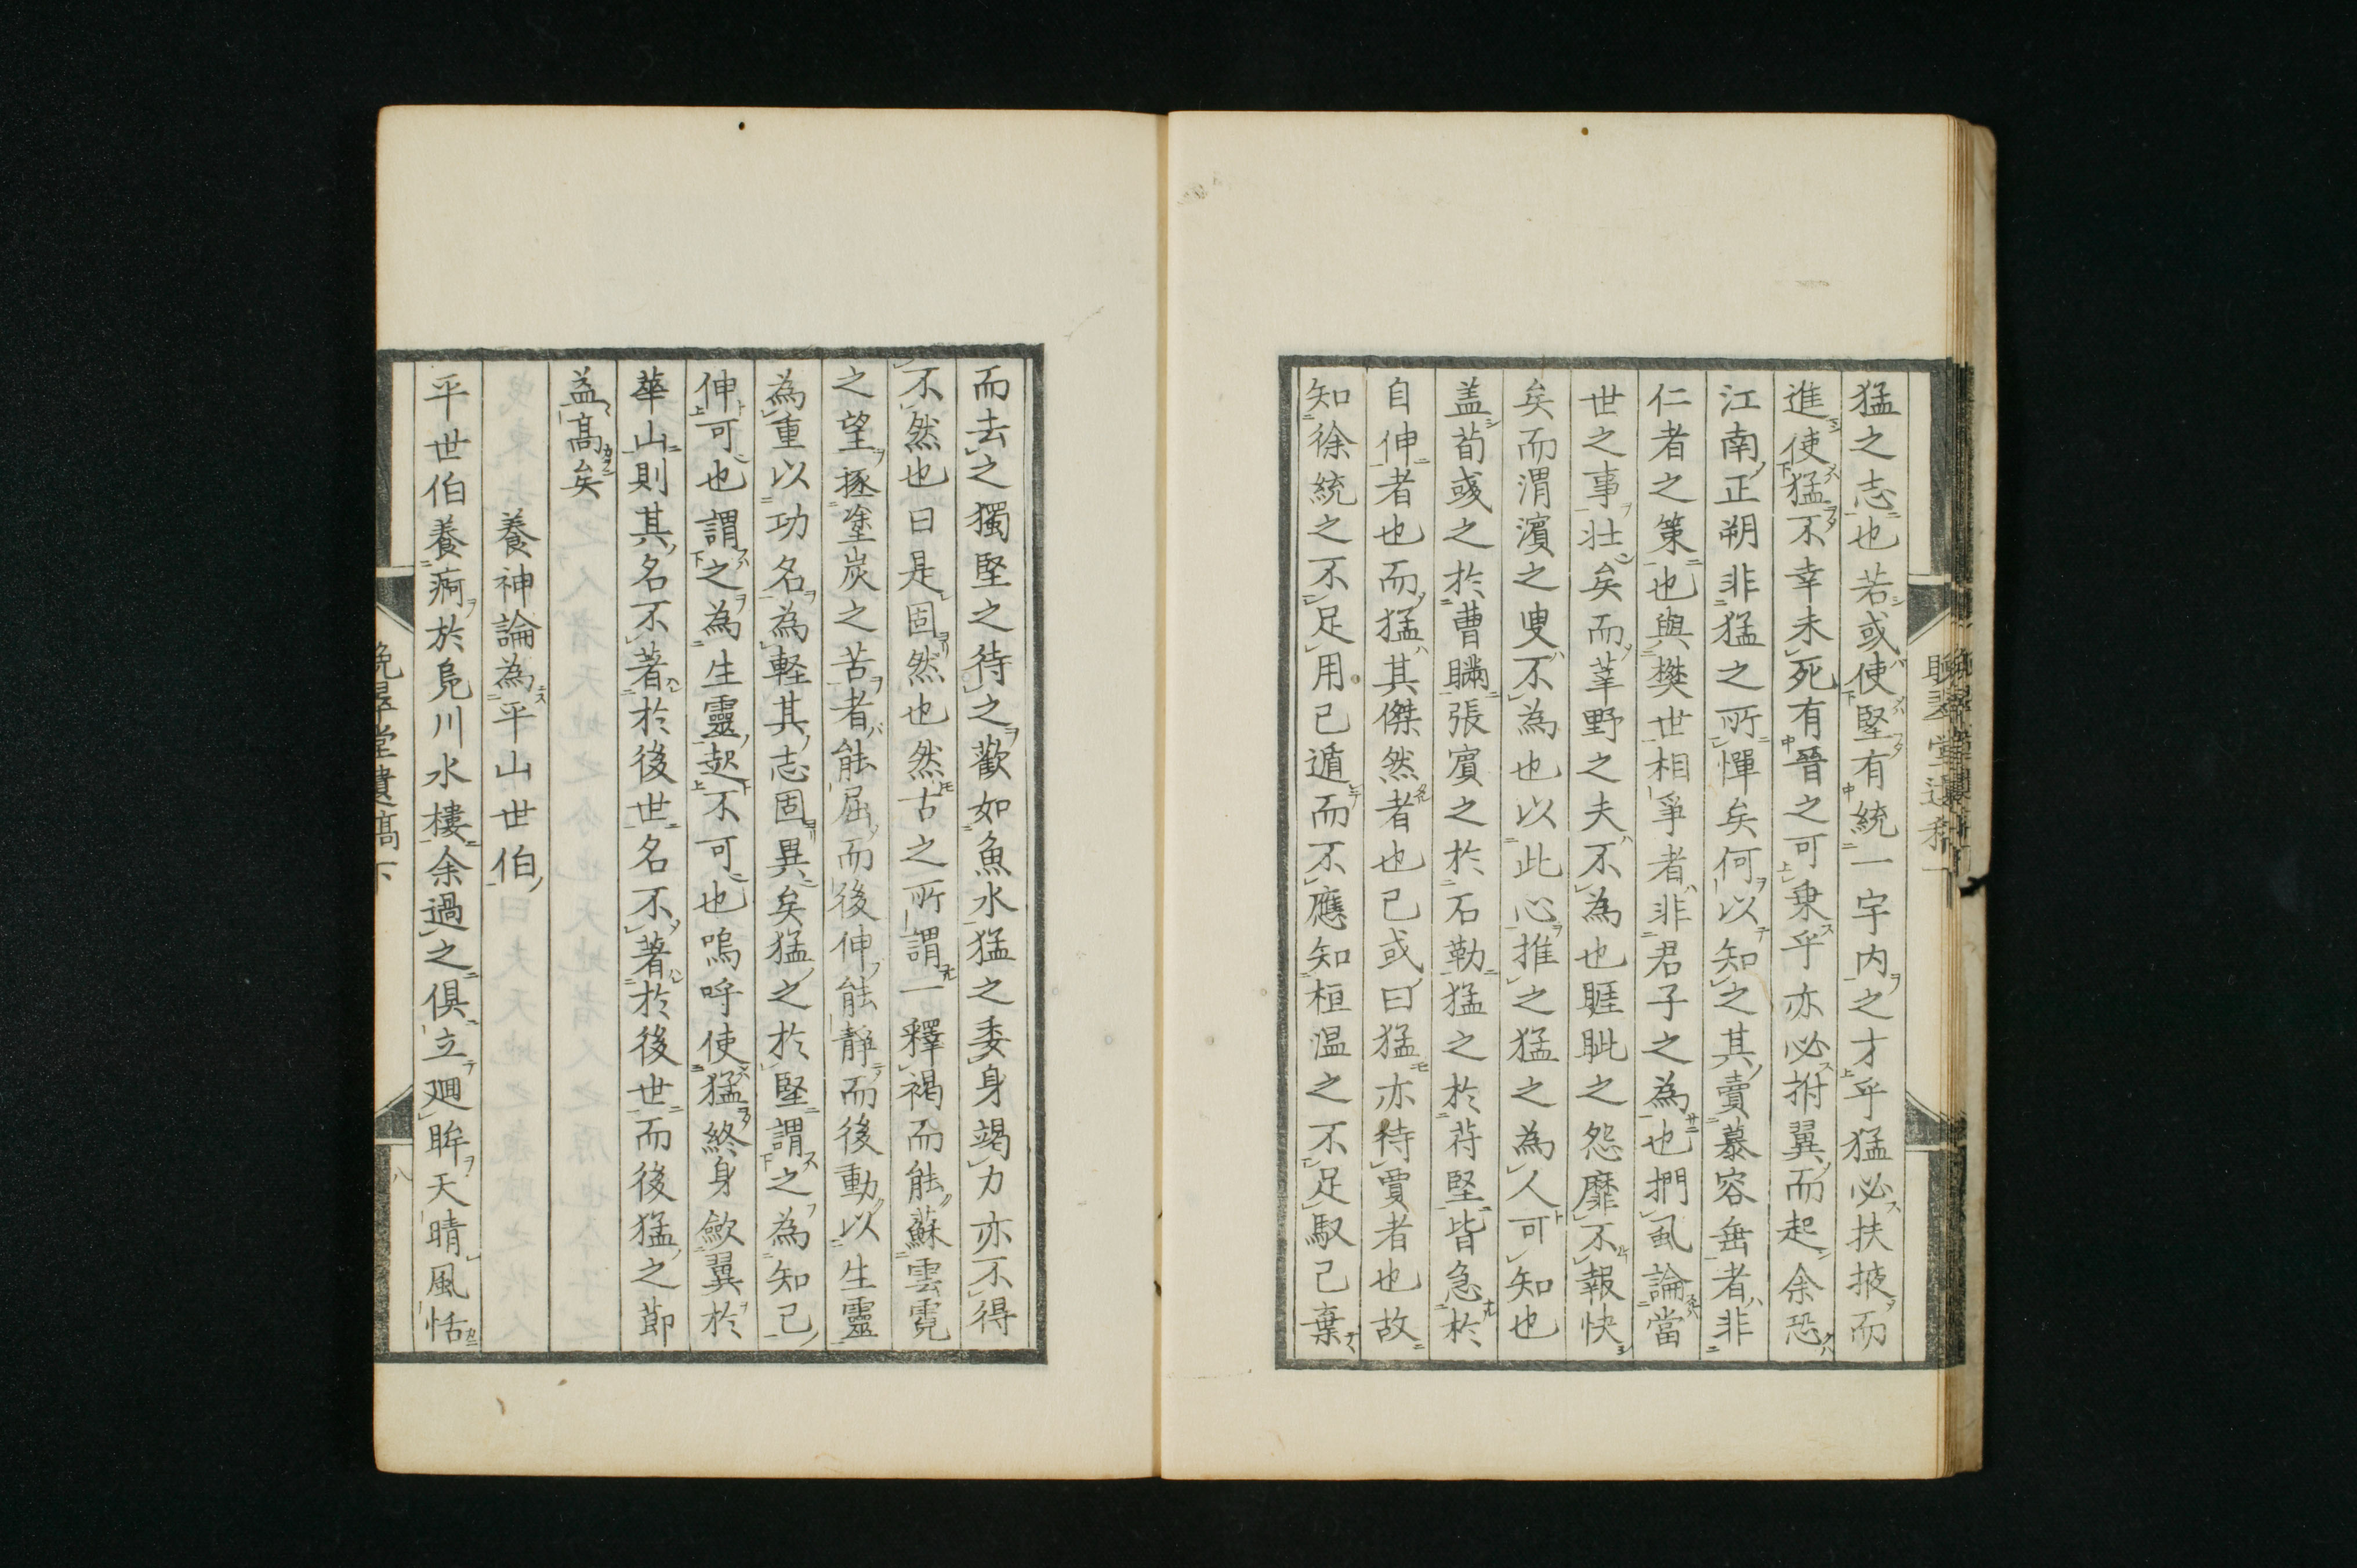 猛之志也若或使堅有統一宇内之才乎猛必扶掖而
進使猛不幸未死有晉之可乗乎亦必拊翼而起余恐
江南正朔非猛之所憚矣何以知之其賣慕容垂者非
仁者之策也與樊世相爭者非君子之為也捫虱論當
世之事壮矣而莘野之夫不為也睚眦之怨靡不報快
矣而渭濱之叟不為也以此心推之猛之為人可知也
盖荀彧之於曹瞞張賓之於石勒猛之於苻堅皆急於
自伸者也而猛其傑然者也已或曰猛亦待賈者也故
知徐統之不足用己遁而不應知桓温之不足馭己棄
而去之獨堅之待之歡如魚水猛之委身竭力亦不得
不然也曰是固然也然古之所謂一釋褐而能蘇雲霓
之望拯塗炭之苦者能屈而後伸能静而後動以生靈
為重以功名為軽其志固異矣猛之於堅謂之為知己
伸可也謂之為生靈起不可也嗚呼使猛終身歛翼於
華山則其名不著於後世名不著於後世而後猛之節
益高矣
養神論為平山世伯
平世伯養痾於鳧川水樓余過之倶立廻眸天晴風恬
晩翠堂遺稿下
八